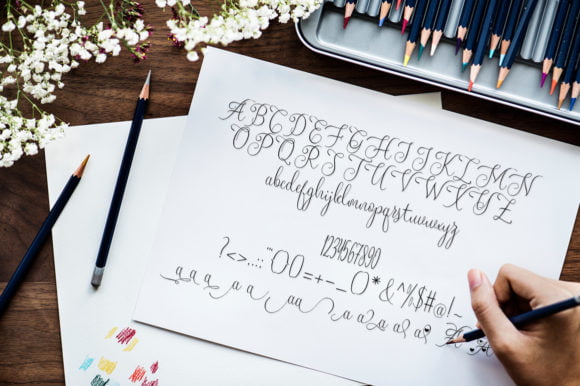 ABCDEFGHIJKLMN
OPQRSTUVWXYZ
abcdefghijklmnopqrstuvwxyz
1234567890
?<>..:;'"()()=+-_()*&^%$#@!~
a a a a aa a a a a a